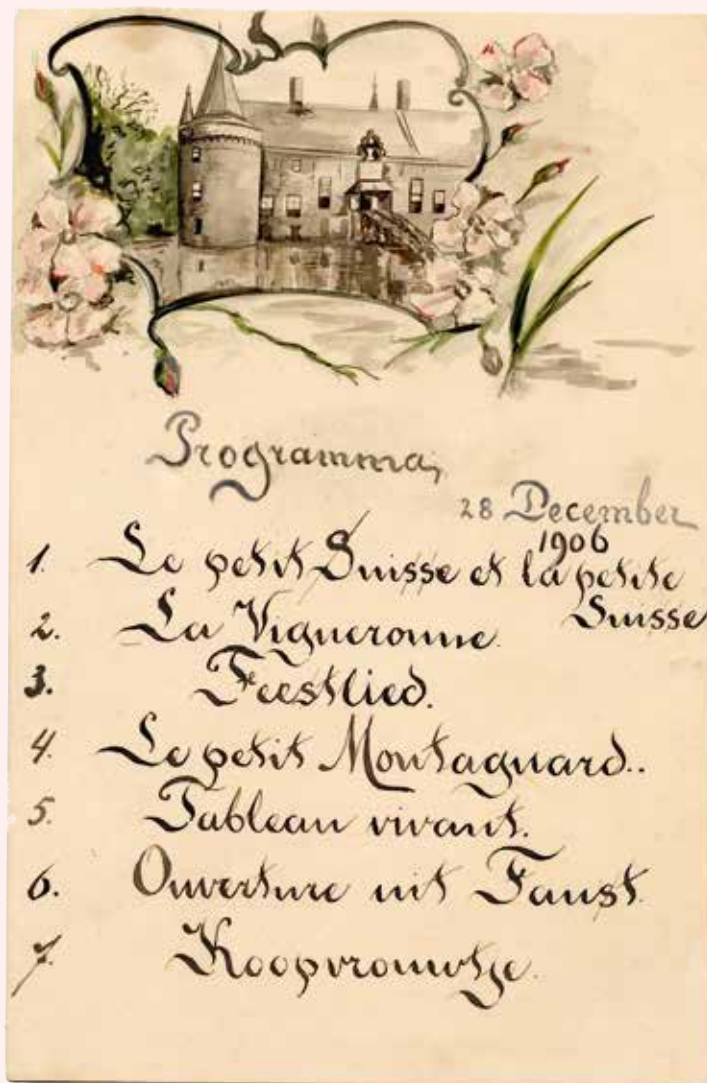 Programma,
28 December
1906
1. Le petit Suisse et la petite
Suisse
2. La Vigneronne.
3. Feestlied.
4. Le petit Montagnard..
5. Tableau vivant.
6. Ouverture uit Faust.
7. Koopvrouwtje.